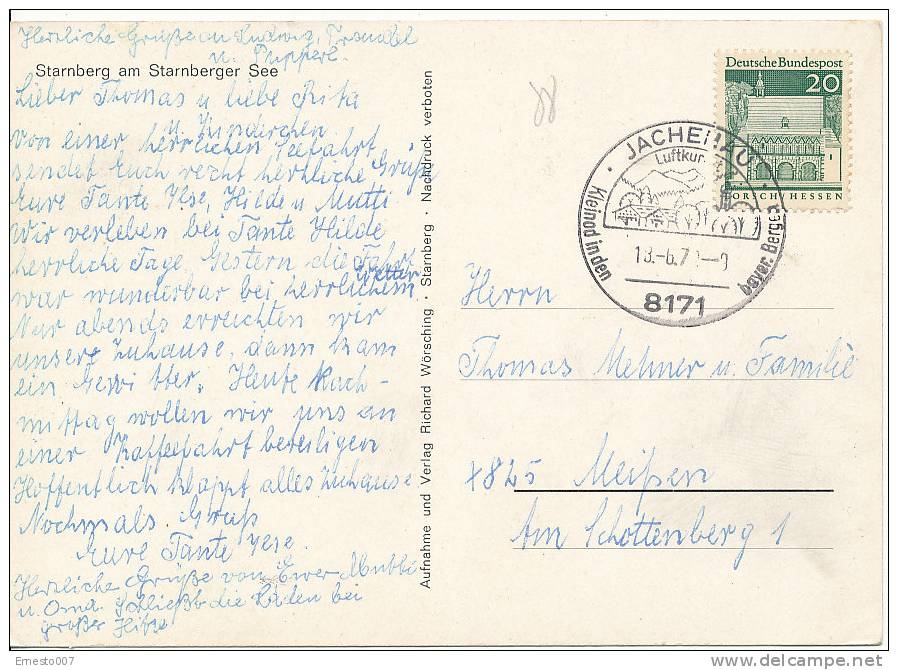 Herzliche Grüße an Ludwig, Traudel
u. Pupperl.
Starnberg am Starnberger See
Lieber Thomas u liebe Rita
u. Kinderchen
Von einer herrlichen Seefahrt
sendet Euch recht herzliche Grüße
Eure Tante Ilse, Hilde u Mutti
Wir verleben bei Tante Hilde
herrliche Tage, Gestern die Fahrt
war wunderbar bei herrlichem Wetter
Nur abends erreichten wir
unsere Zuhause, dann kam
ein Gewitter. Heute Nach-
mittag wollen wir uns an
einer Kaffeefahrt beteiligen
Hoffentlich klappt alles Zuhause
Nochmals Gruß
Eure Tante Ilse.
Herzliche Grüße von Euer Mutti
u. Oma. schließt die Läden bei
großer Hitze
Aufnahme und Verlag Richard Wörsching · Starnberg · Nachdruck verboten
Deutsche Bundespost
20
LORSCH/HESSEN
JACHENAU
Luftkur
Kleinod in den
bayer. Bergen
18.-6.7
8171
Herrn
Thomas Mehner u. Familie
x825 Meißen
Am Schottenberg 1
Ernesto007
www.delcampe.net